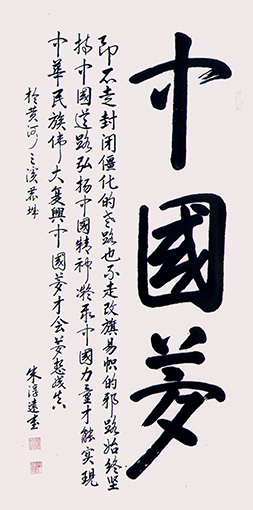 中國夢
即不走封闭僵化的老路也不走改旗易帜的邪路始终坚
持中國道路弘扬中國精神凝聚中國力量才能实現
中華民族伟大复興中國夢才会夢想成真
於黄河之滨
朱泽远书